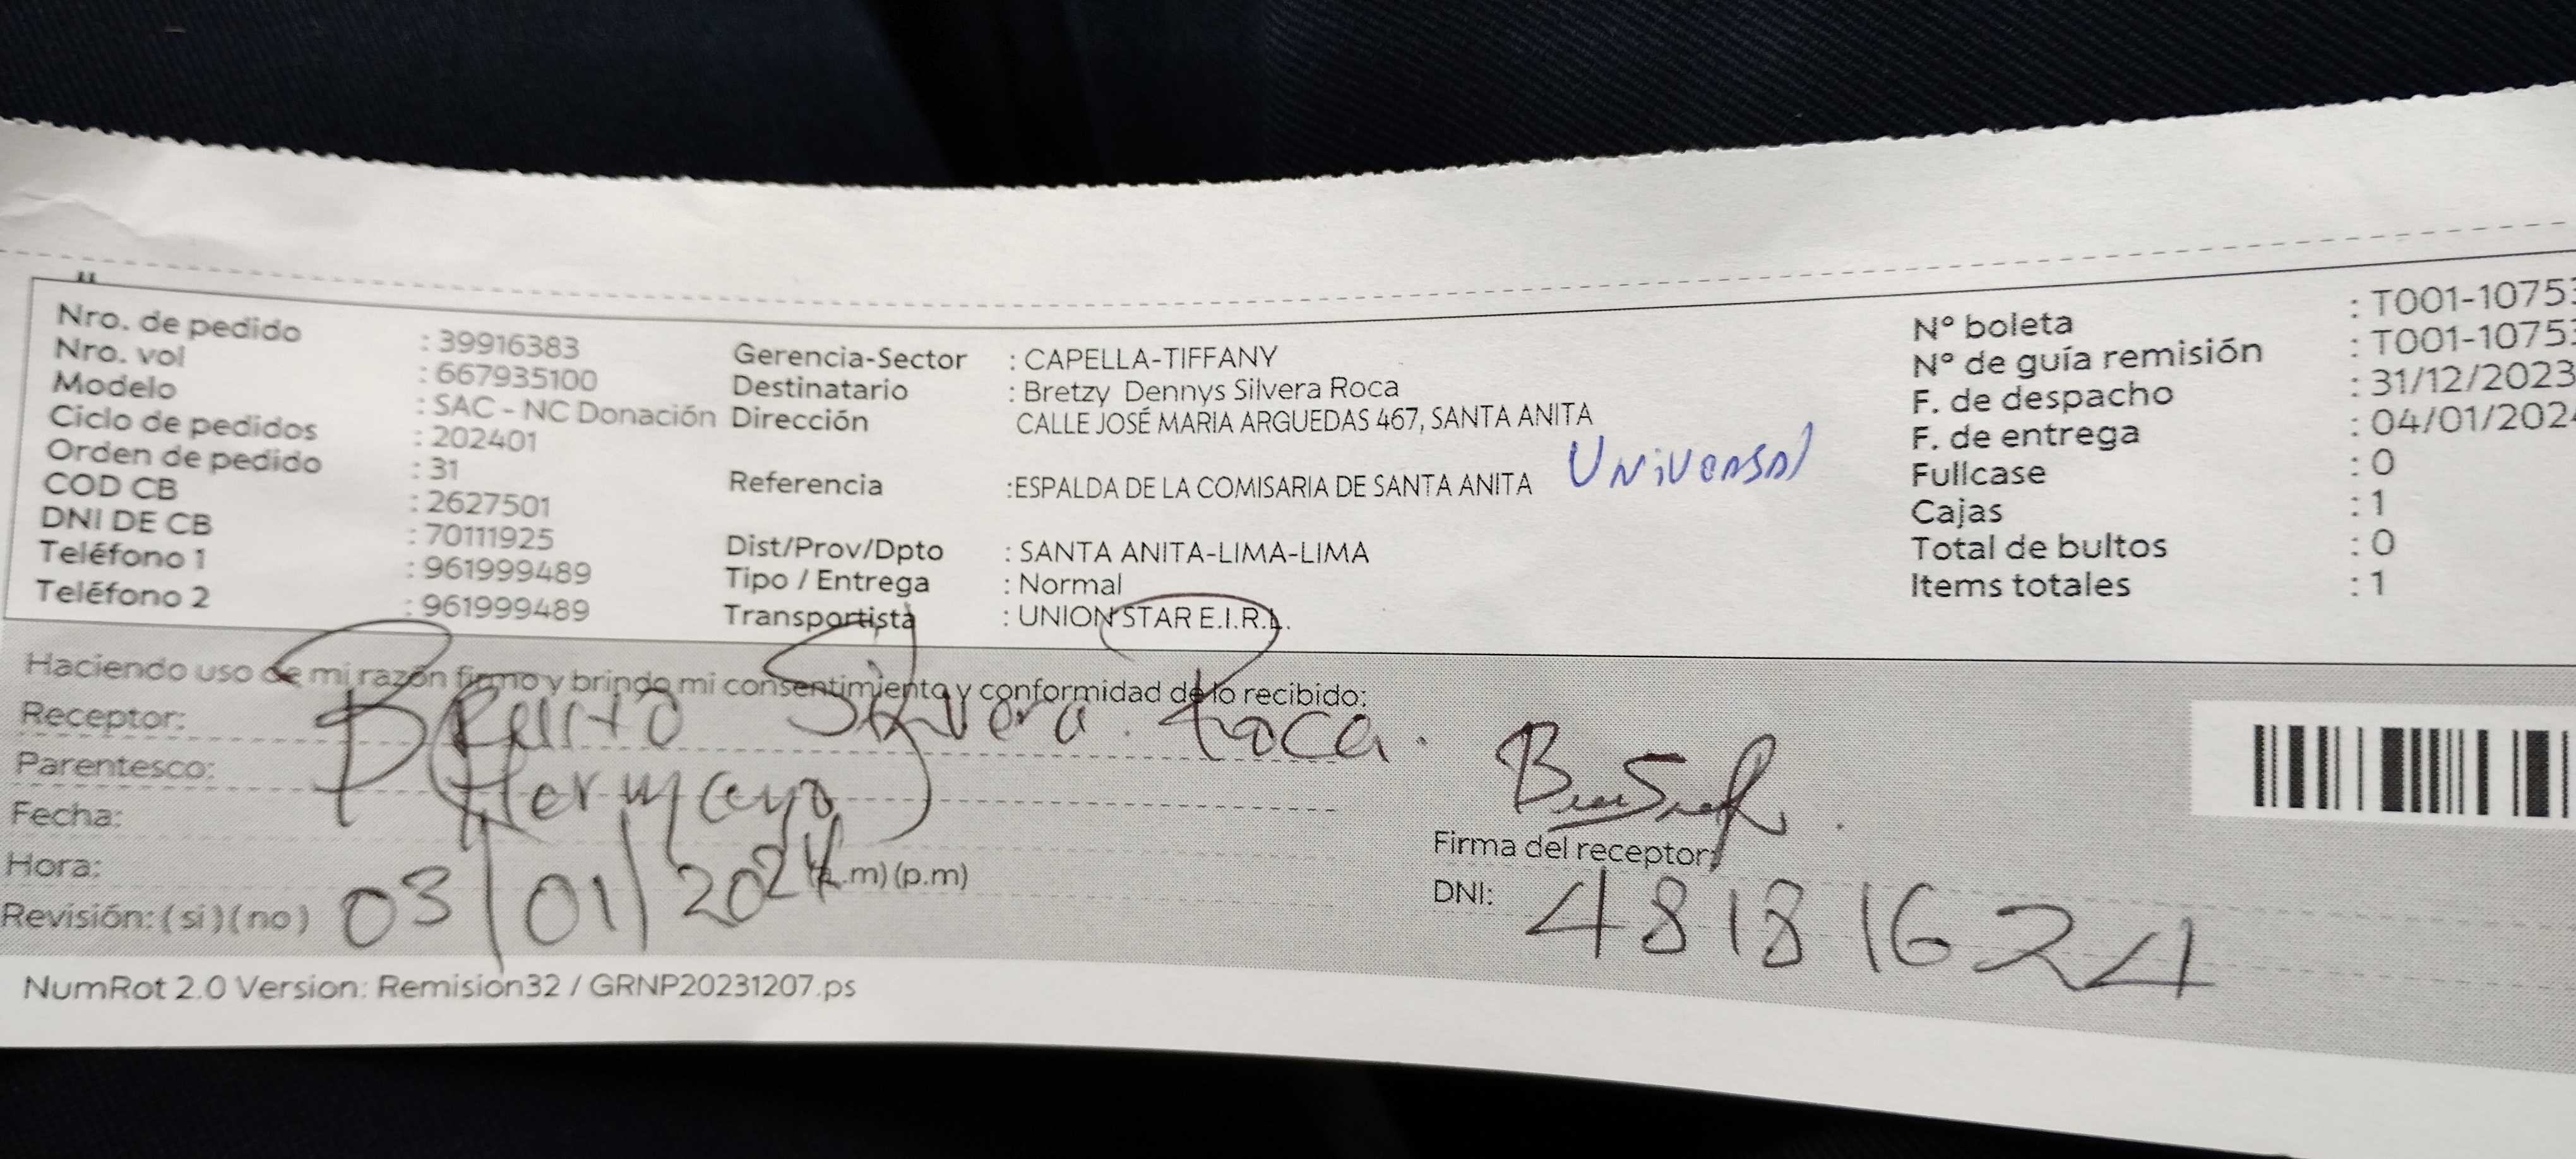 Nro. de pedido : 39916383
Nro. vol : 667935100
Modelo : SAC - NC Donación
Ciclo de pedidos : 202401
Orden de pedido : 31
COD CB : 2627501
DNI DE CB : 70111925
Teléfono 1 : 961999489
Teléfono 2 : 961999489
Gerencia-Sector : CAPELLA-TIFFANY
Destinatario : Bretzy Dennys Silvera Roca
Dirección CALLE JOSÉ MARIA ARGUEDAS 467, SANTA ANITA
Universal
Referencia :ESPALDA DE LA COMISARIA DE SANTA ANITA
Dist/Prov/Dpto : SANTA ANITA-LIMA-LIMA
Tipo / Entrega : Normal
Transportista : UNION STAR E.I.R.L.
N° boleta : T001-10753
N° de guía remisión : T001-10753
F. de despacho : 31/12/2023
F. de entrega : 04/01/202
Fullcase : 0
Cajas : 1
Total de bultos : 0
Items totales : 1
Haciendo uso de mi razón firmo y brindo mi consentimiento y conformidad de lo recibido:
Receptor: Silvera Roca.
Parentesco: Hermano
Fecha: 03/01/2024
Hora: (a.m) (p.m)
Revisión: (si) (no)
Firma del receptor:
DNI: 48181624
NumRot 2.0 Version: Remision32 / GRNP20231207.ps